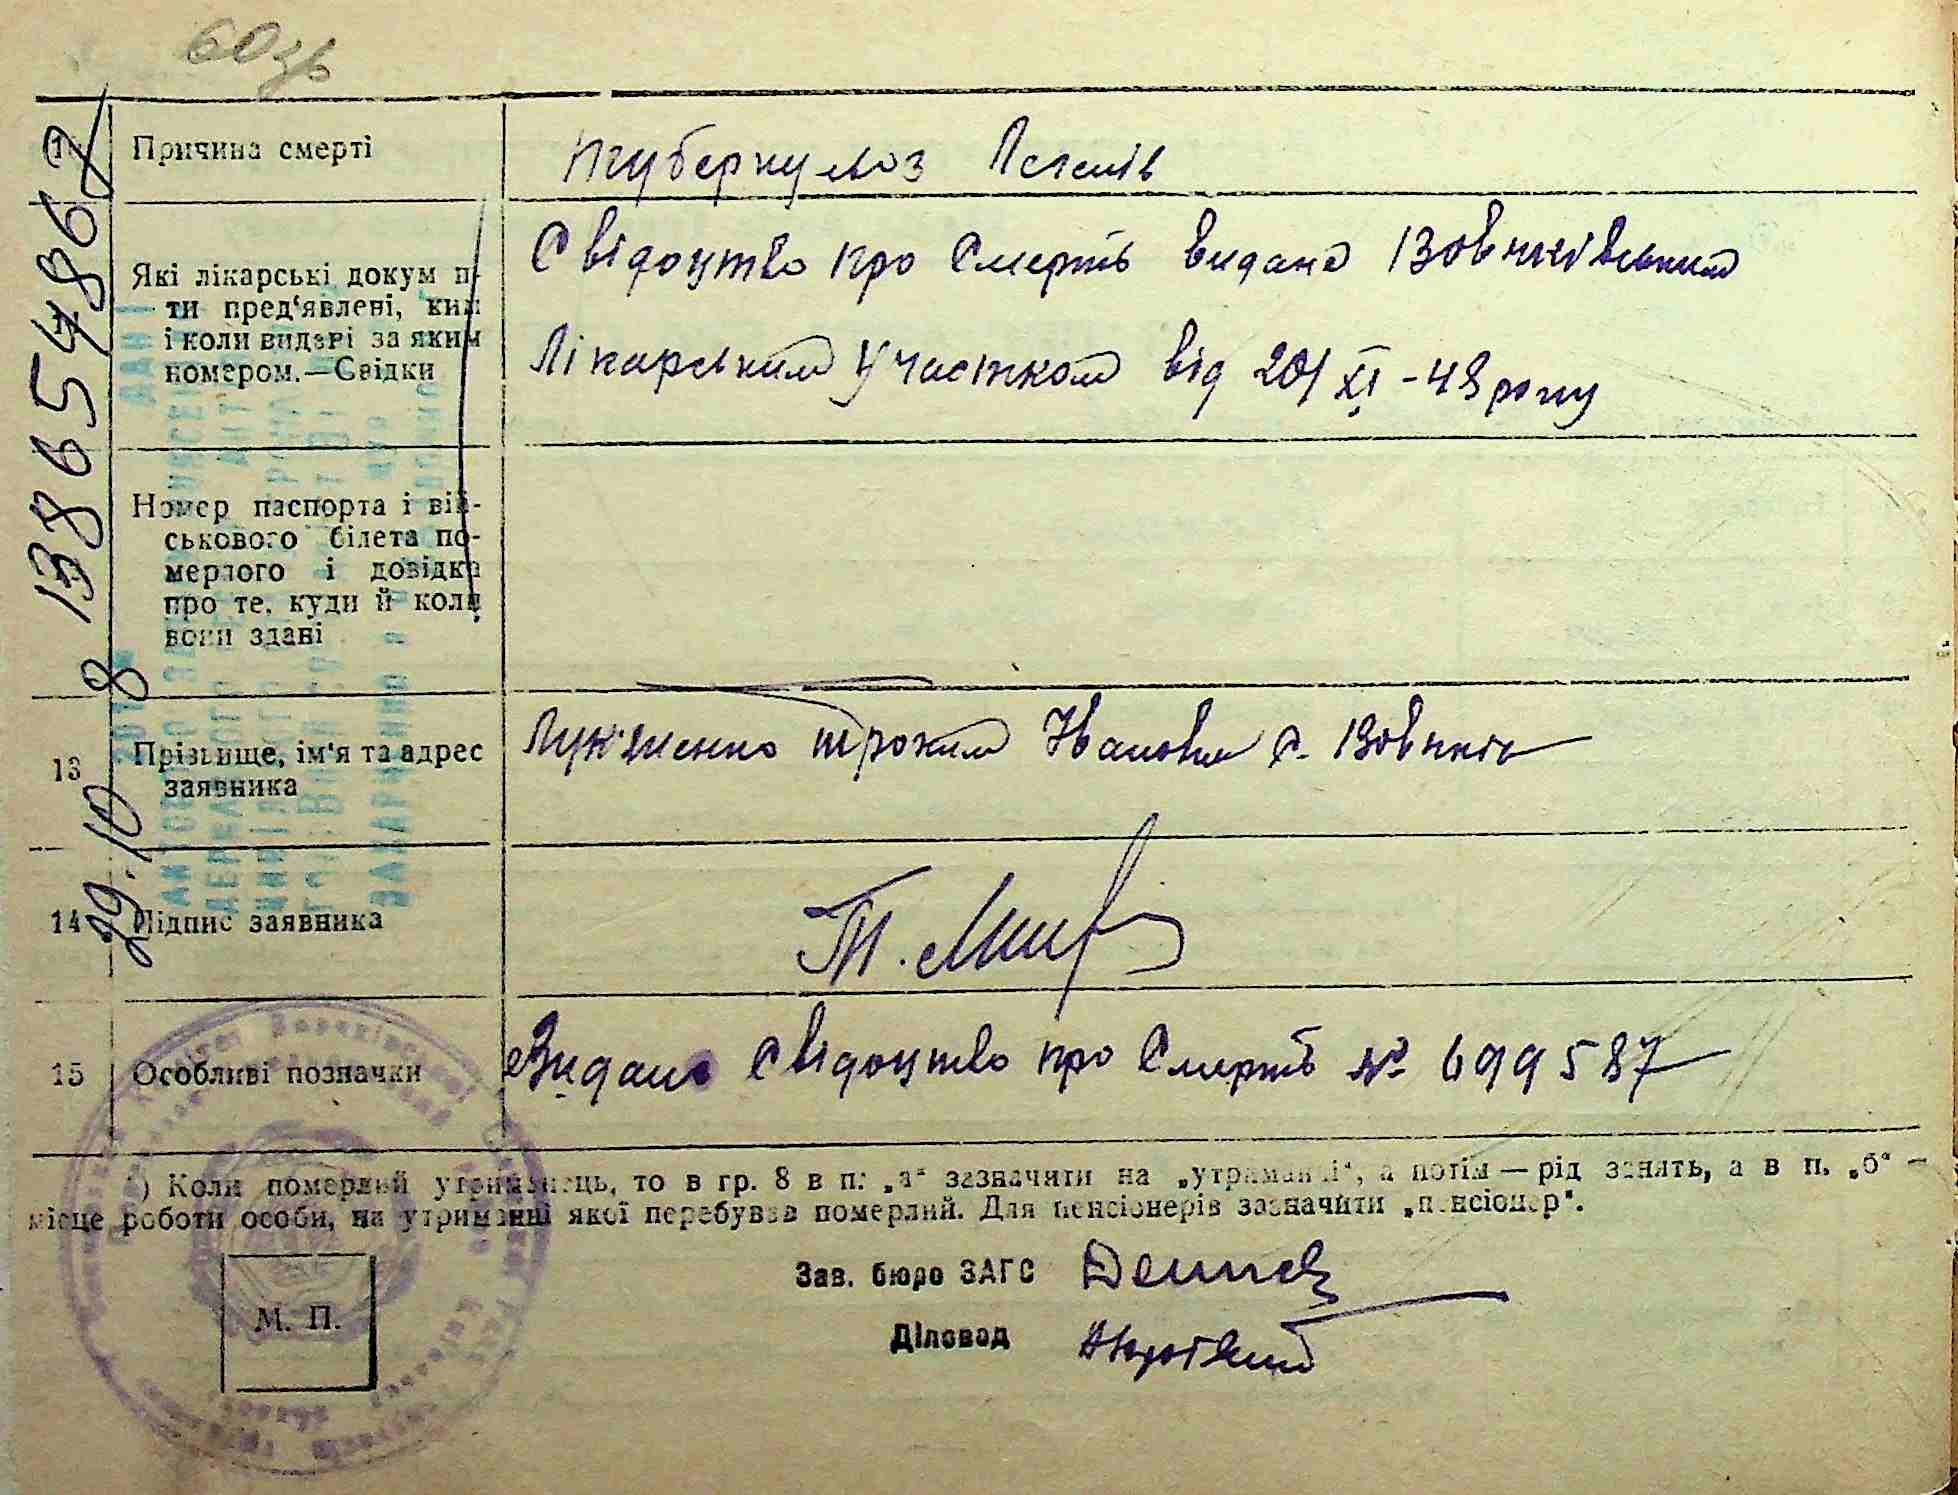 Причина смерті
Туберкульоз Легенів
Які лікарські докум н-
ти пред'явлені, ким
і коли видані за яким
номером.—Свідки
Свідоцтво про Смерть видано Вовчківським
Лікарським Участком від 20/XI-48 року
Номер паспорта і вій-
ськового білета по-
мерлого і довідка
про те, куди й коли
вони здані
13
Прізвище, ім'я та адрес
заявника
Трохим Іванович с. Вовчків
14
Підпис заявника
15
Особливі позначки
Видано Свідоцтво про Смерть № 699587
*) Коли померлий утриманець, то в гр. 8 в п. „а" зазначити на „утриманні", а потім — рід занять, а в п. „б" —
місце роботи особи, на утриманні якої перебував померлий. Для пенсіонерів зазначити „пенсіонер".
Зав. бюро ЗАГС
Діловод
М. П.
29.10 2018 13865486